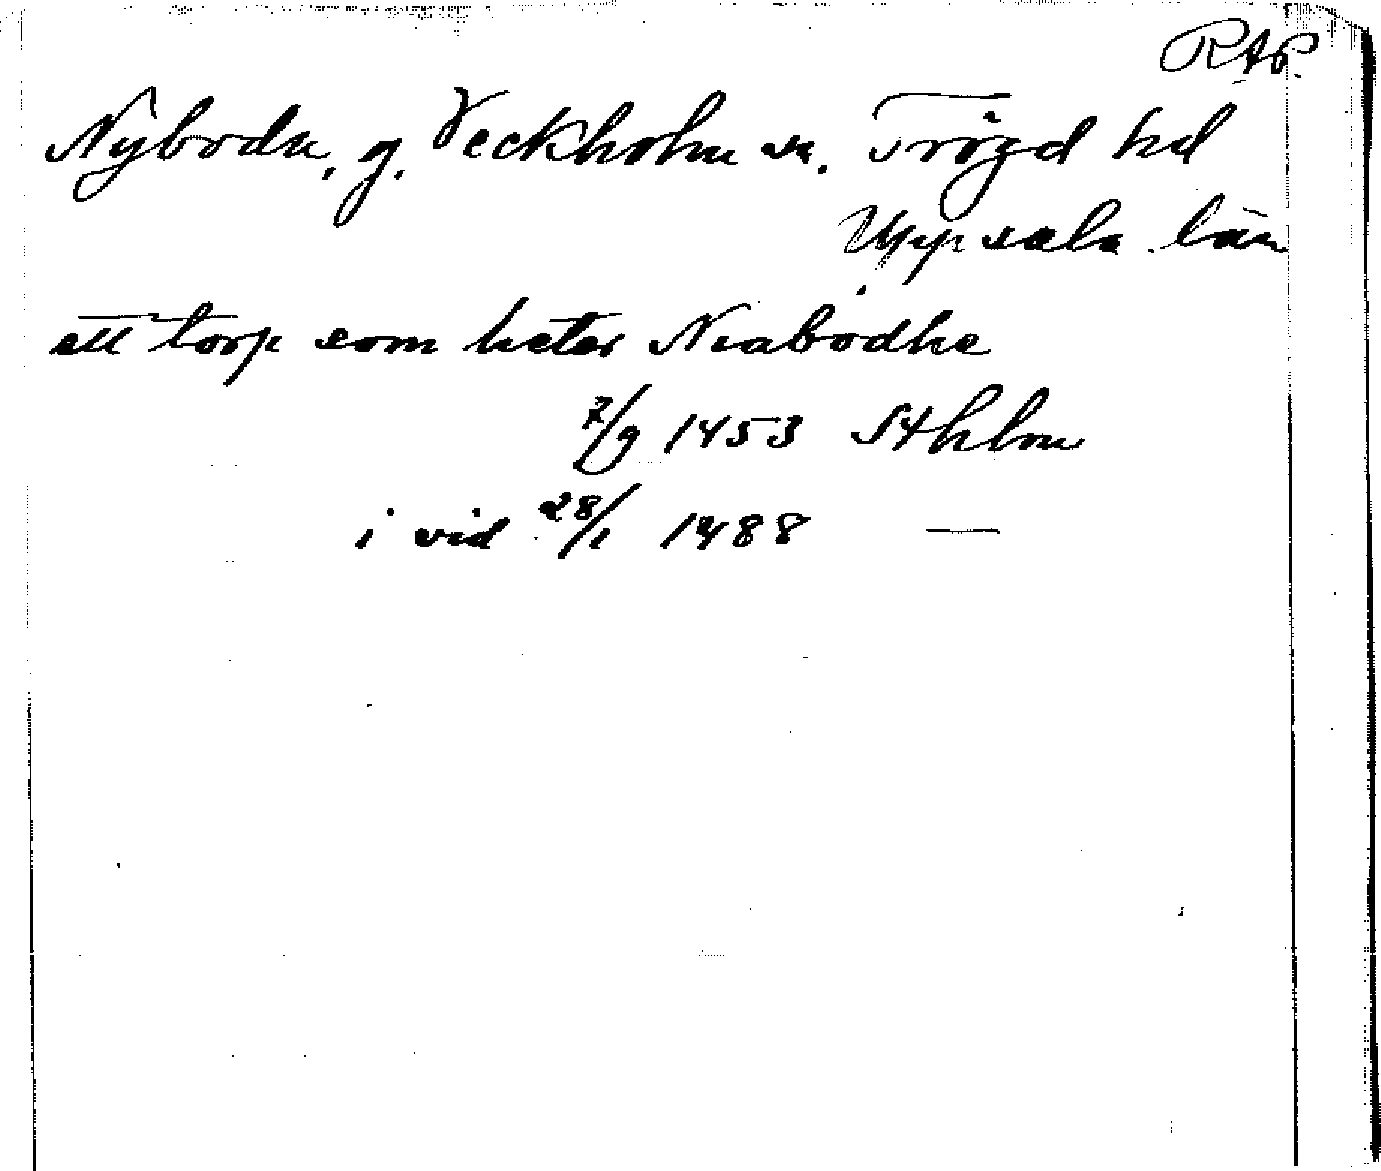 RAP.
Nyboda, g. Veckholm sn. Trögd hd
Uppsala län
ett torp som heter Niabodhe
7/9 1453 Sthlm
i vid 28/1 1488 —